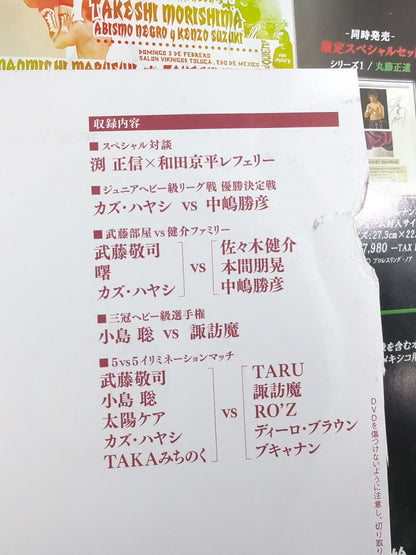 TAKESHI MORISHIMA
ABISMO NEGRO y KENZO SUZUKI
DOMINGO 3 DE FEBRERO
SALON VIKINGOS TOLUCA, EDO DE MEXICO
-同時発売-
限定スペシャルセット
シリーズ1 / 丸藤正道
収録内容
■スペシャル対談
渕 正信×和田京平レフェリー
■ジュニアヘビー級リーグ戦 優勝決定戦
カズ・ハヤシ vs 中嶋勝彦
■武藤部屋vs健介ファミリー
武藤敬司
曙
カズ・ハヤシ
vs
佐々木健介
本間朋晃
中嶋勝彦
■三冠ヘビー級選手権
小島 聡 vs 諏訪魔
■5vs5イリミネーションマッチ
武藤敬司
小島 聡
太陽ケア
カズ・ハヤシ
TAKAみちのく
vs
TARU
諏訪魔
RO'Z
ディーロ・ブラウン
ブキャナン
封入サイ
ズ:27.3cm×22.
7,980 —TAX
プロレスリング・ノア
DVDを傷つけないように注意し、切り取り